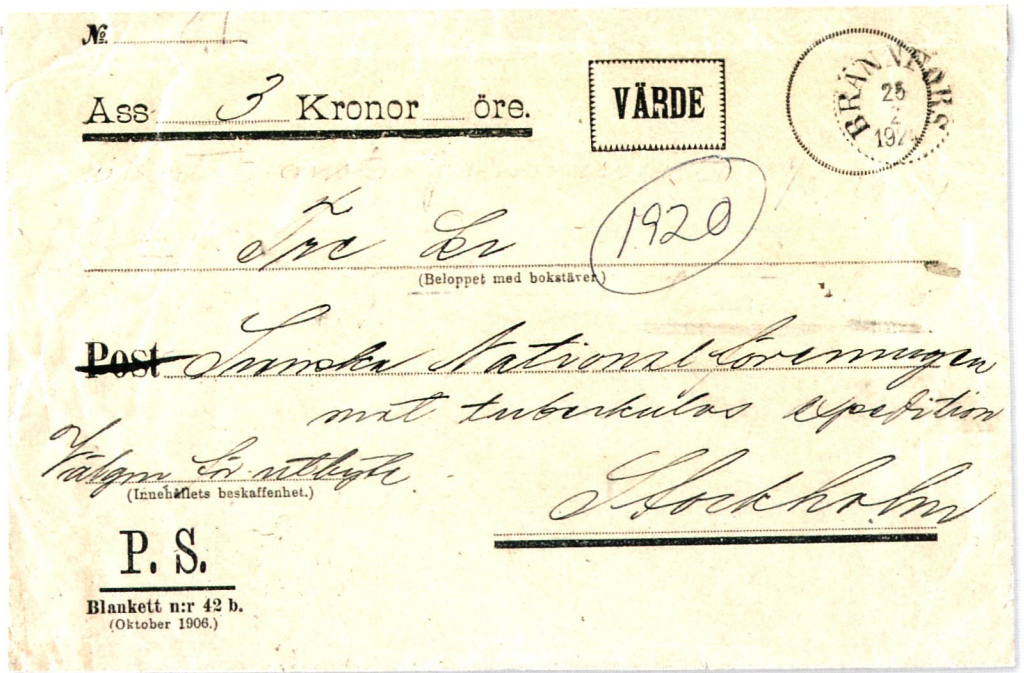 №
Ass 3 Kronor öre.
VÄRDE
BRÄNNFORS
25
2
192
Tre kr
1920
(Beloppet med bokstäver.)
Post Svenska Nationalföreningen
mot tuberkulos expedition
för utbyte
(Innehållets beskaffenhet.)
Stockholm
P. S.
Blankett n:r 42 b.
(Oktober 1906.)